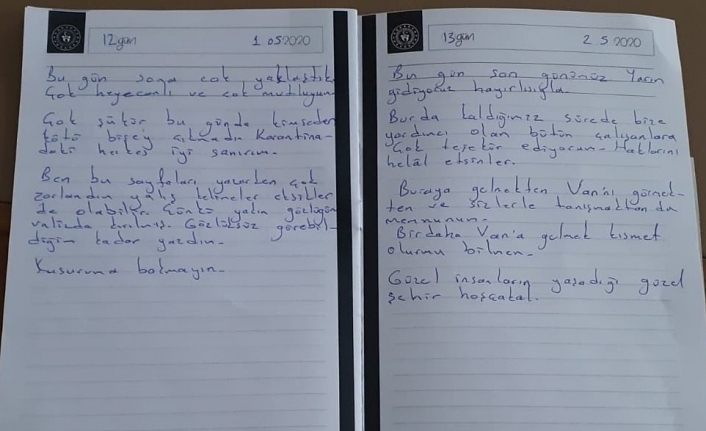 12 gün 1 05 2020
Bu gün sona cok yaklaştık
Çok heyecanlı ve cok mutluyum
Çok şükür bu günde kimseden
kötü bişey çıkmadı Karantina-
daki herkes iyi sanırım.
Ben bu sayfaları yazarken çok
zorlandım yalnış kelimeler eksikler
de olabilir. Çünkü yakın gözlüğüm
valizda kırılmış. Gözlüksüz görebil-
diğim kadar yazdım.
Kusuruma bakmayın.
13 gün 2 5 2020
Bu gün son günümüz Yarın
gidiyoruz hayırlısıyla.
Burda kaldığımız sürede bize
yardımcı olan bütün çalışanlara
Çok teşekür ediyorum. Haklarını
helâl etsinler.
Buraya gelmekten Van'ı görmek-
ten ve sizlerle tanışmaktan da
memnunum.
Birdaha Van'a gelmek kısmet
olurmu bilmem.
Güzel insanların yaşadığı güzel
şehir hoşcakal.